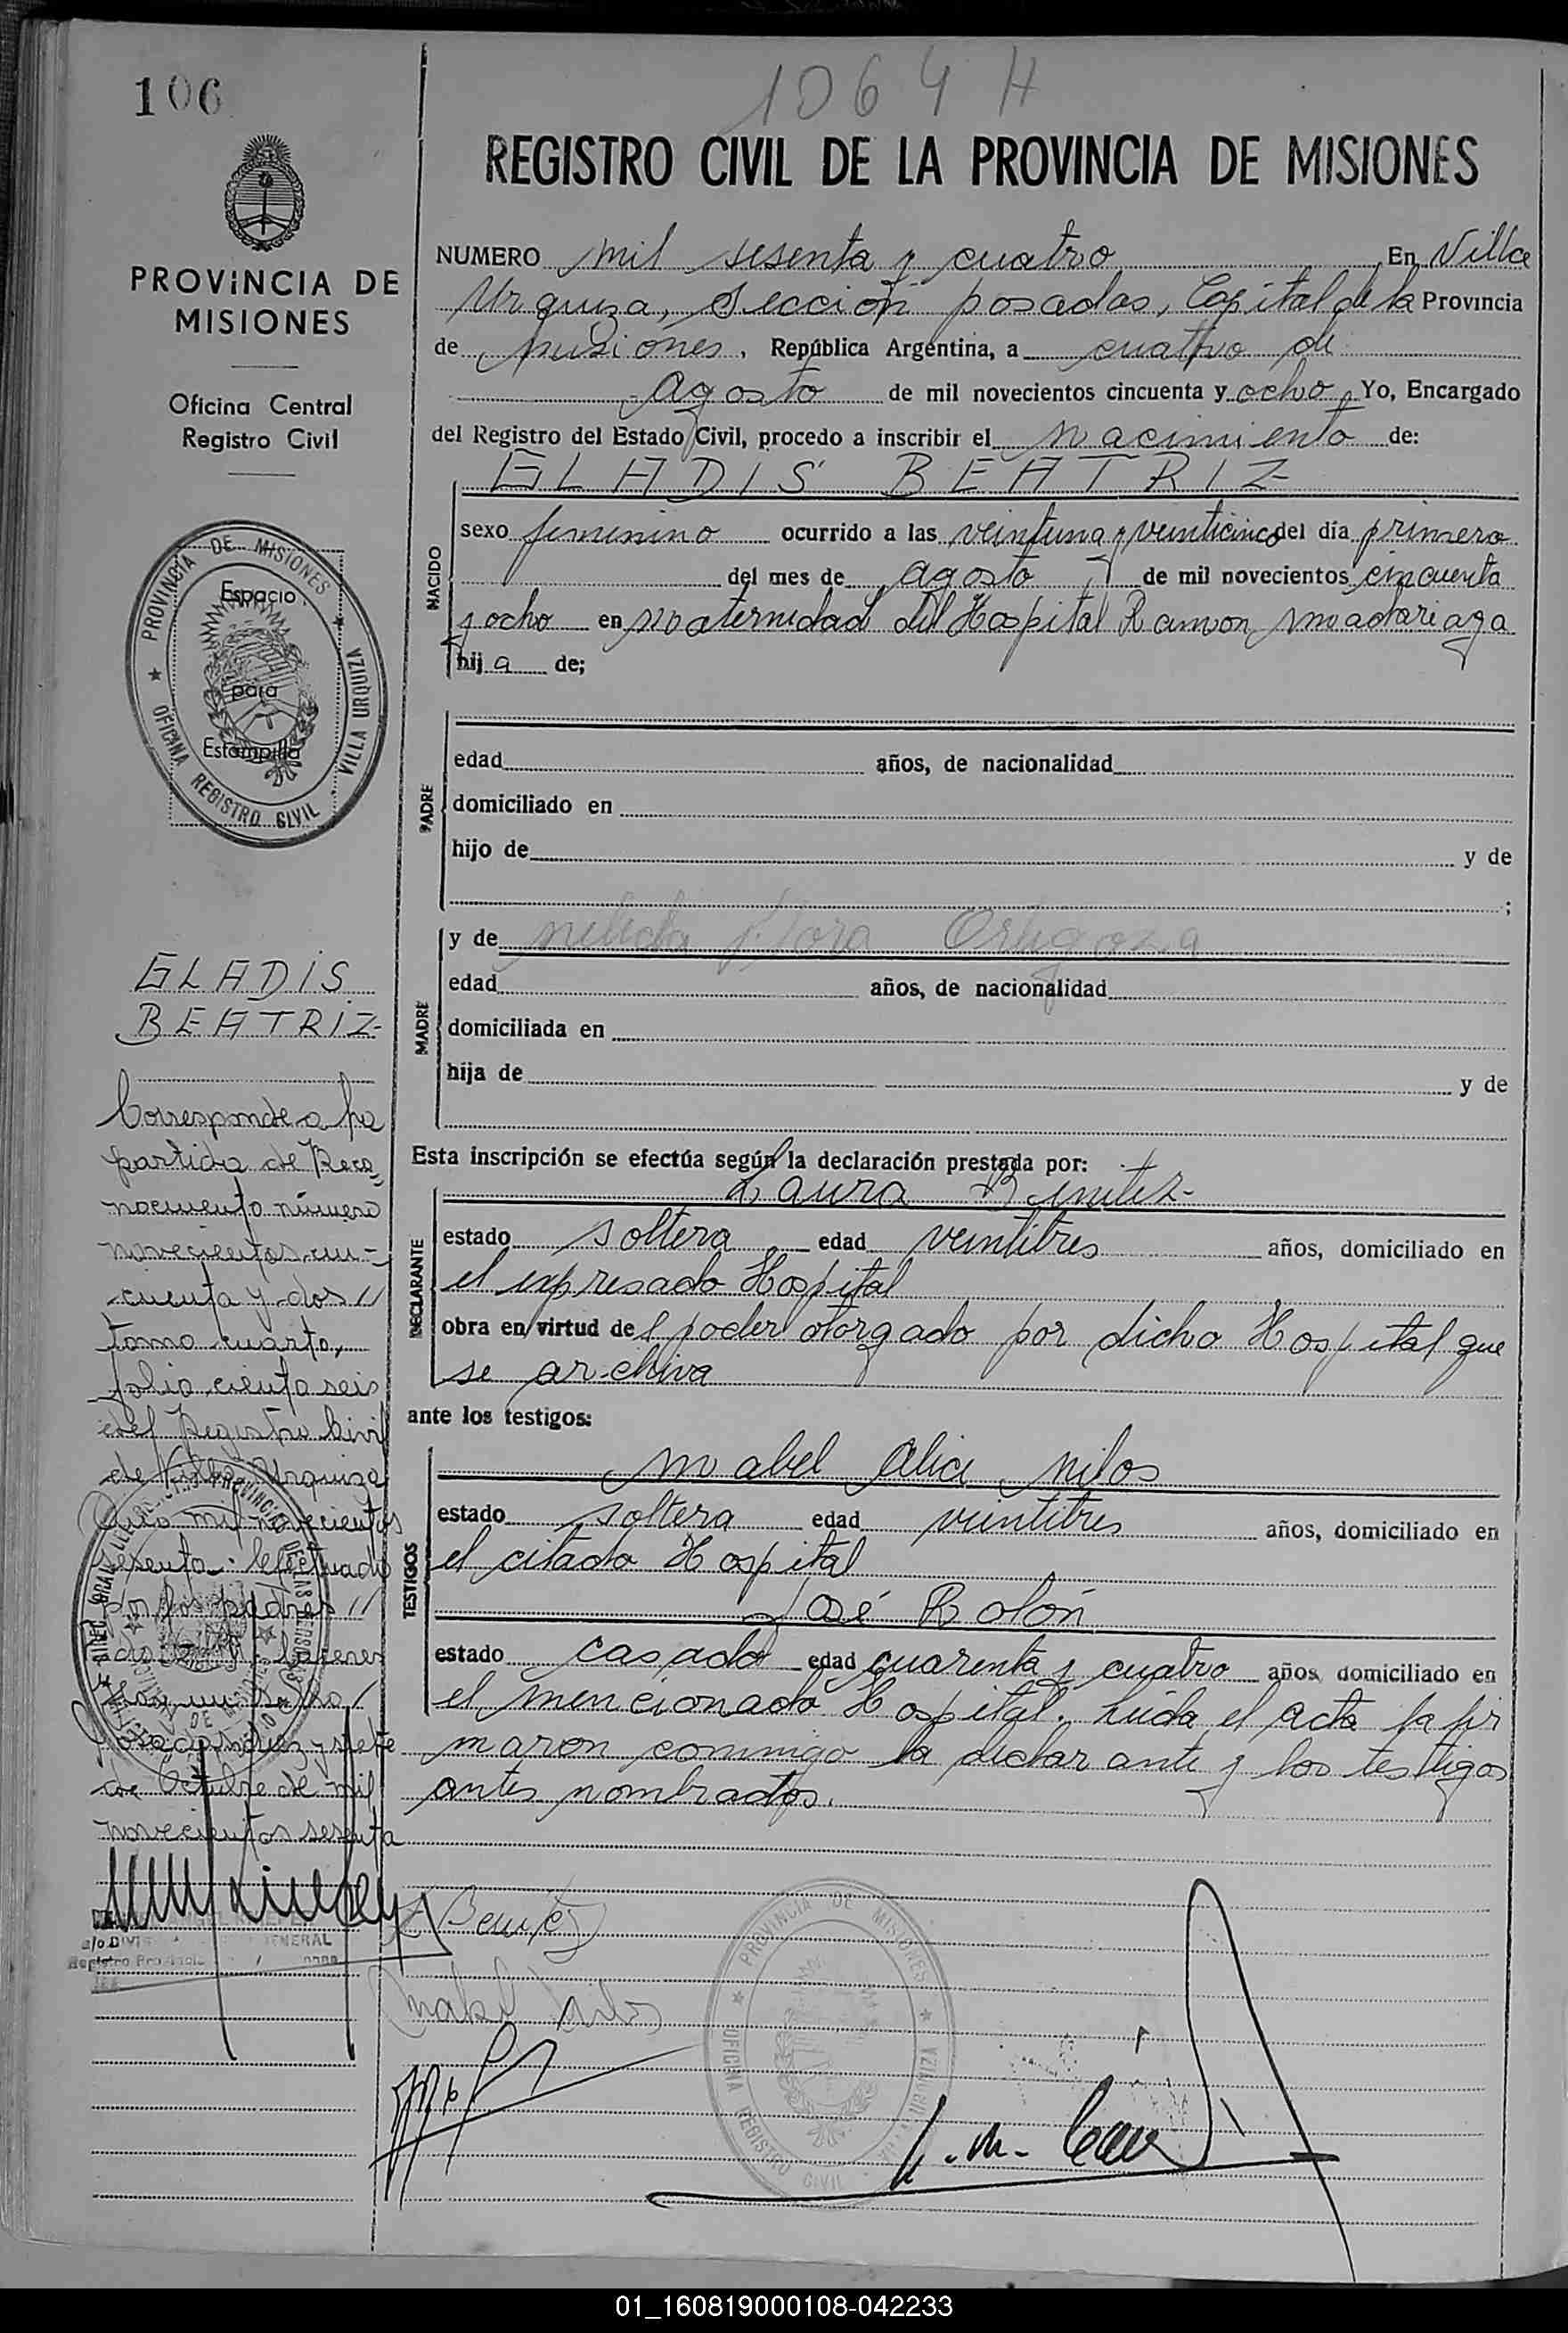 106
1064 H
PROVINCIA DE
MISIONES
Oficina Central
Registro Civil
PROVINCIA DE MISIONES
OFICINA REGISTRO CIVIL
VILLA URQUIZA
Espacio
para
Estampilla
GLADIS
BEATRIZ-
Corresponde a la
partida de Reco-
nocimiento número
novecientos cin-
cuenta y dos //
tomo cuarto,
folio ciento seis
del Registro Civil
de Villa Urquiza
Año mil novecientos
sesenta. Efectuado
por los padres //
diez y siete
de Octubre de mil
novecientos sesenta
REGISTRO CIVIL DE LA PROVINCIA DE MISIONES
NUMERO mil sesenta y cuatro En Villa
Urquiza, Sección posadas, Capital de la Provincia
de misiones, República Argentina, a cuatro de
Agosto de mil novecientos cincuenta y ocho, Yo, Encargado
del Registro del Estado Civil, procedo a inscribir el nacimiento de:
GLADIS BEATRIZ-
NACIDO
sexo femenino ocurrido a las veintiuna y veinticinco del día primero
del mes de agosto de mil novecientos cincuenta
y ocho en maternidad del Hospital Ramon madariaga
hija de;
PADRE
edad años, de nacionalidad
domiciliado en
hijo de y de
;
MADRE
y de nelida Flora Ortigoza
edad años, de nacionalidad
domiciliada en
hija de y de
Esta inscripción se efectúa según la declaración prestada por:
DECLARANTE
Laura Benitez-
estado soltera edad veintitres años, domiciliado en
el expresado Hospital
obra en virtud del poder otorgado por dicho Hospital que
se archiva
ante los testigos:
TESTIGOS
mabel Alice nilos
estado soltera edad veintitres años, domiciliado en
el citado Hospital
José Rolón
estado casado edad cuarenta y cuatro años domiciliado en
el mencionado Hospital. Leida el acta la fir
maron conmigo la declarante y los testigos
antes nombrados.
L Benitez
PROVINCIA DE MISIONES
OFICINA REGISTRO CIVIL
01_160819000108-042233